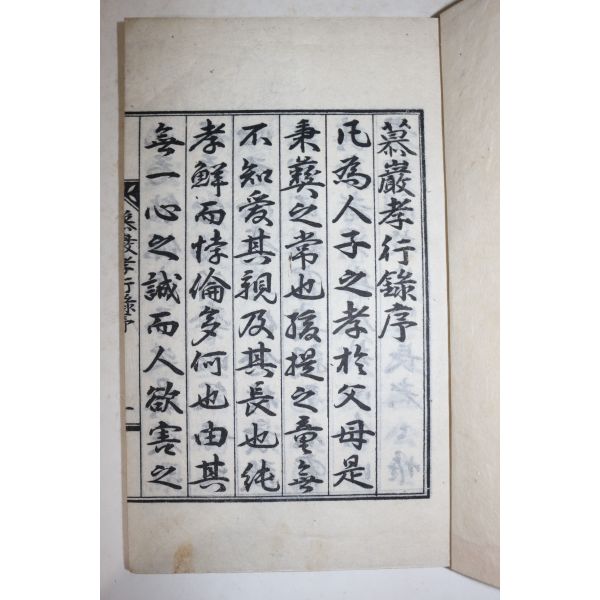 慕巖孝行錄序
凡為人子之孝於父母是
秉彝之常也孩提之童無
不知愛其親及其長也純
孝鮮而悖倫多何也由其
無一心之誠而人欲害之
慕巖孝行錄序
一